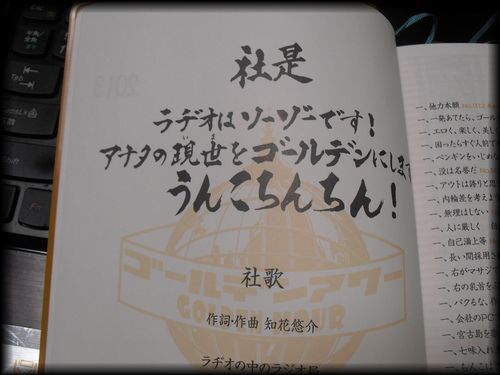 社是
ラヂオはソーゾーです!
アナタの現世をゴールデンにしま
うんこちんちん!
ゴールデンアワー
GOLDEN HOUR
社歌
作詞・作曲 知花悠介
ラヂオの中のラジオ局
2013
一、他力本願
一、一発あてたら、ゴール
一、エロく、楽しく、美し
一、困ったらすぐ人前で
一、ペンギンをいじめ
一、没は名誉だ
一、アウトは誇りと思
一、内輪差を考えよう
一、無理はしない
一、人に厳しく 自
一、自己満上等
一、長い間採用さ
一、右がマサシ
一、右の乳首を
一、パクるな、
一、会社のPC
一、宮古島を
一、七味入れ